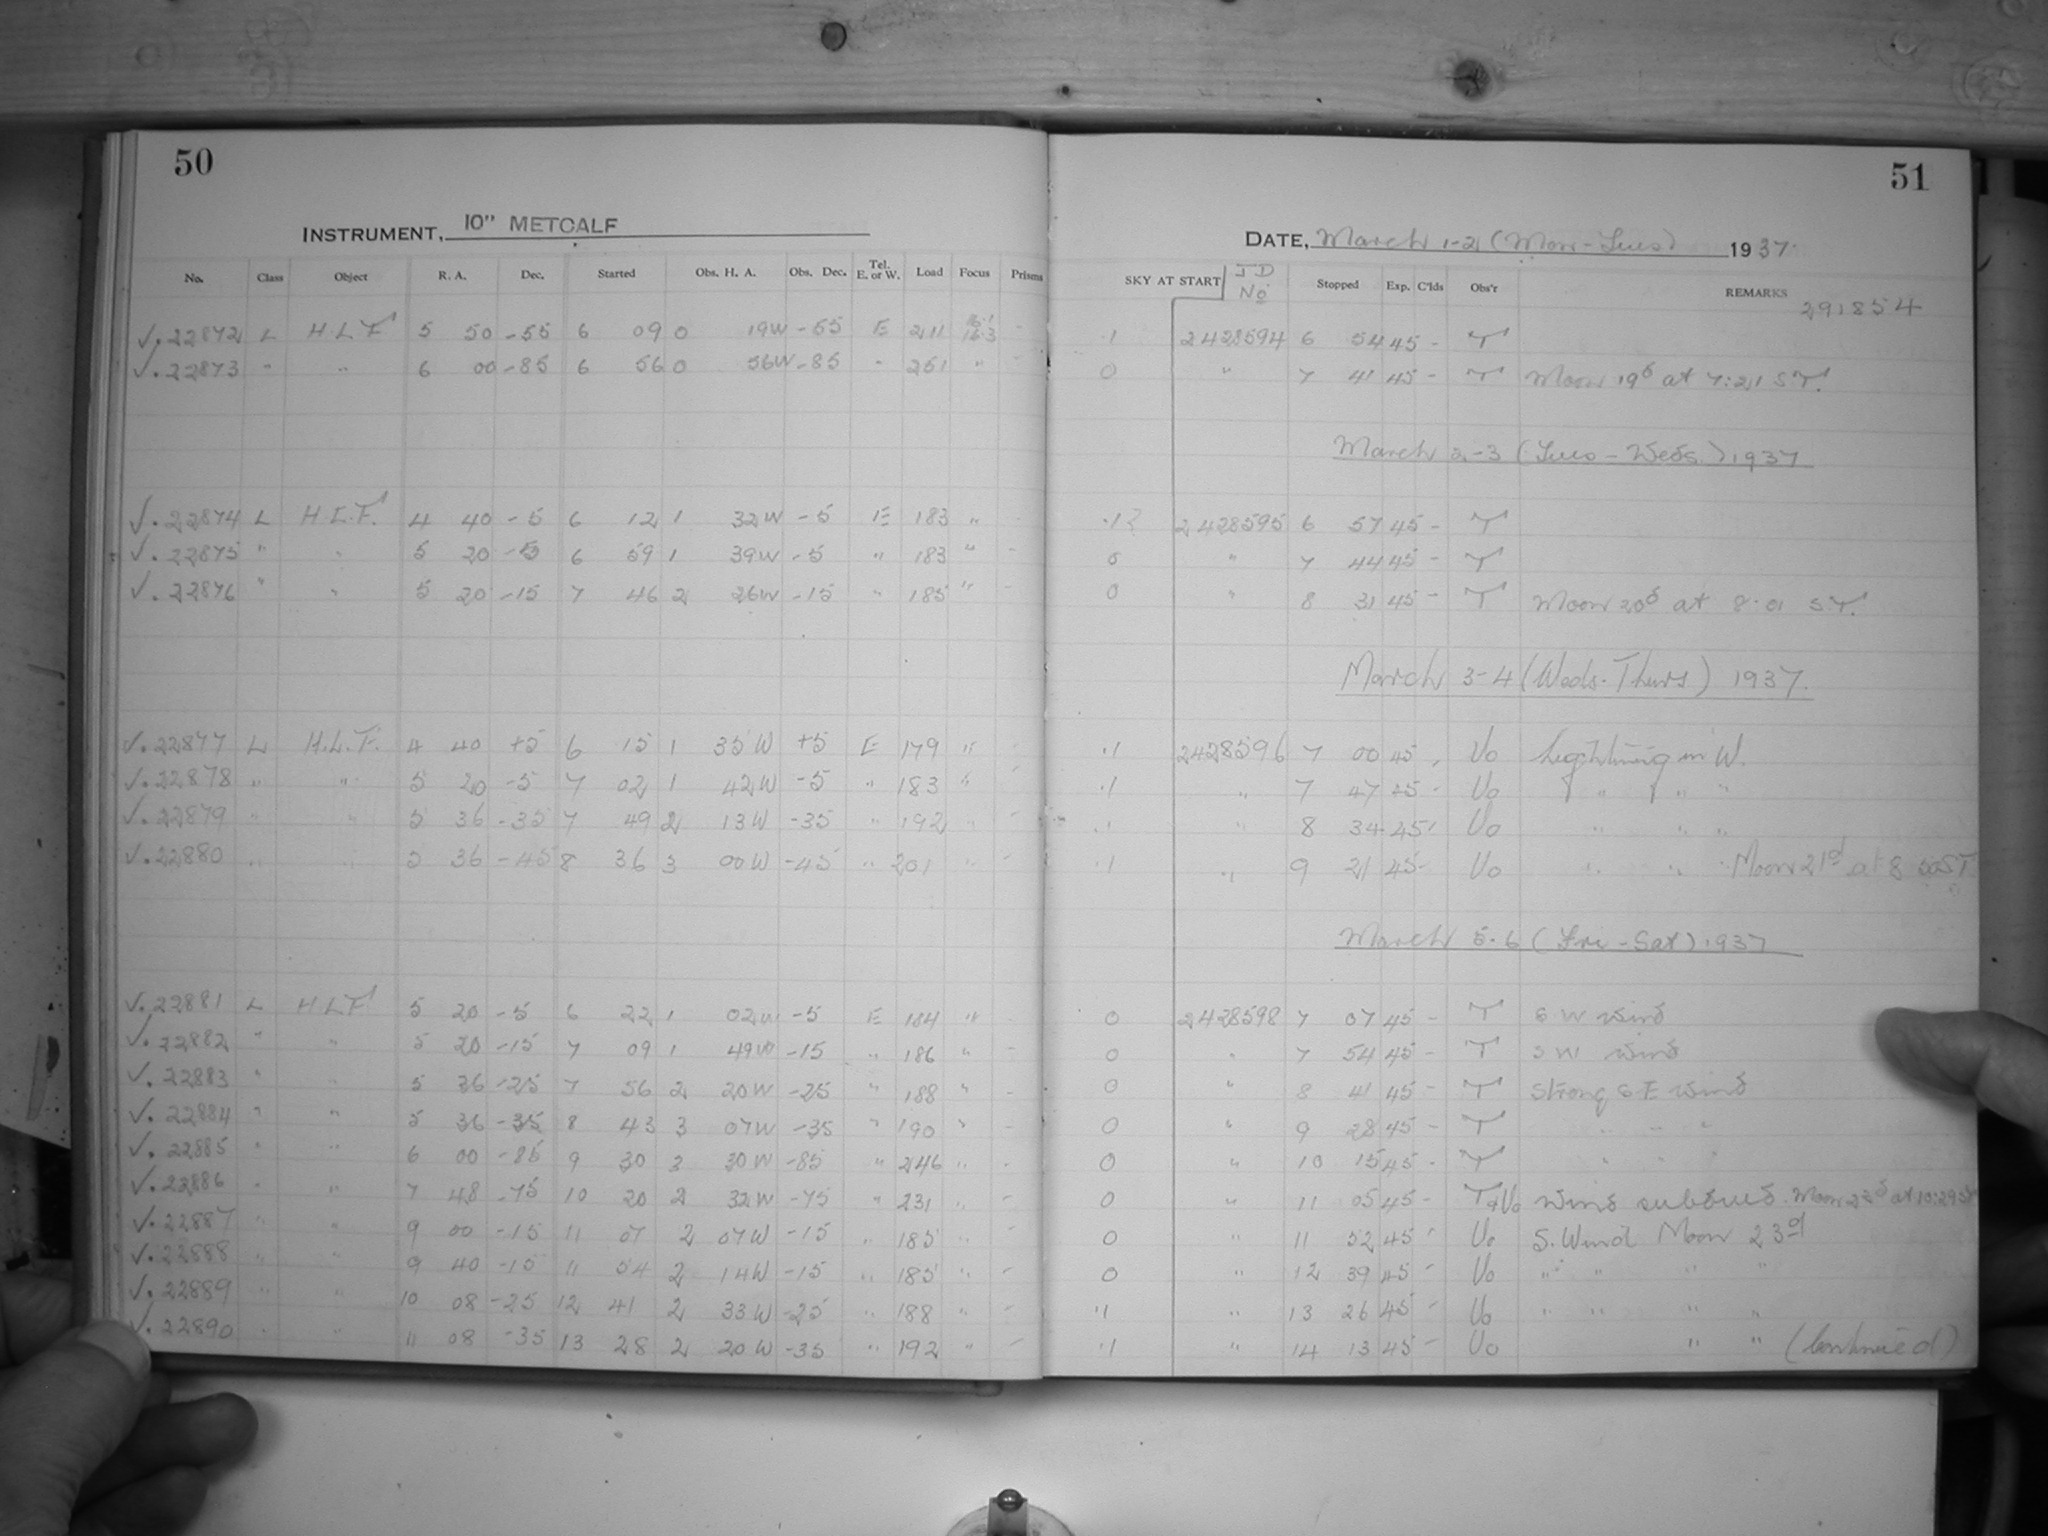 50
INSTRUMENT, 10" METCALF
No. Class Object R. A. Dec. Started Obs. H. A. Obs. Dec. Tel. E. or W. Load Focus Prisms
√. 22872 L H.L.T 5 50 -55 6 09 0 19W -55 E 211 16.1 16.3 -
√. 22873 " " 6 00 -85 6 56 0 56W -85 " 251 " -
√. 22874 L H.L.T. 4 40 -5 6 12 1 32W -5 E 183 " -
√. 22875 " " 5 20 -5 6 59 1 39W -5 " 183 " -
√. 22876 " " 5 20 -15 7 46 2 26W -15 " 185 " -
√. 22877 L H.L.T. 4 40 +5 6 15 1 35W +5 E 179 " -
√. 22878 " " 5 20 -5 7 02 1 42W -5 " 183 " -
√. 22879 " " 5 36 -35 7 49 2 13W -35 " 192 " -
√. 22880 " " 5 36 -45 8 36 3 00W -45 " 201 " -
√. 22881 L H L T 5 20 -5 6 22 1 02W -5 E 184 " -
√. 22882 " " 5 20 -15 7 09 1 49W -15 " 186 " -
√. 22883 " " 5 36 -25 7 56 2 20W -25 " 188 " -
√. 22884 " " 5 36 -35 8 43 3 07W -35 " 190 " -
√. 22885 " " 6 00 -85 9 30 3 30W -85 " 246 " -
√. 22886 " " 7 48 -75 10 20 2 32W -75 " 231 " -
√. 22887 " " 9 00 -15 11 07 2 07W -15 " 185 " -
√. 22888 " " 9 40 -15 11 54 2 14W -15 " 185 " -
√. 22889 " " 10 08 -25 12 41 2 33W -25 " 188 " -
√. 22890 " " 11 08 -35 13 28 2 20W -35 " 192 " -
51
DATE, March 1-2 (Mon-Tues) 1937.
SKY AT START J D No Stopped Exp. C'lds Obs'r REMARKS
291854
.1 2428594 6 54 45 - T
0 " 7 41 45 - T Moon 19d at 7:21 S T.
March 2-3 (Tues-Weds.) 1937
.1 2428595 6 57 45 - T
0 " 7 44 45 - T
0 " 8 31 45 - T Moon 20d at 8.01 S T.
March 3-4 (Weds-Thurs) 1937.
.1 2428596 7 00 45 - Uo Lightning in W.
.1 " 7 47 45 - Uo " " "
.1 " 8 34 45 - Uo " " "
.1 " 9 21 45 - Uo " " " Moon 21d at 8 50 S T
March 5-6 (Fri-Sat) 1937
0 2428598 7 07 45 - T S W wind
0 " 7 54 45 - T S W wind
0 " 8 41 45 - T Strong S E wind
0 " 9 28 45 - T " " "
0 " 10 15 45 - T " " "
0 " 11 05 45 - T+Uo wind subdued. Moon 23d at 10:29 ST
0 " 11 52 45 - Uo S. Wind Moon 23d
0 " 12 39 45 - Uo " " " "
.1 " 13 26 45 - Uo " " " "
.1 " 14 13 45 - Uo " " (Continued)